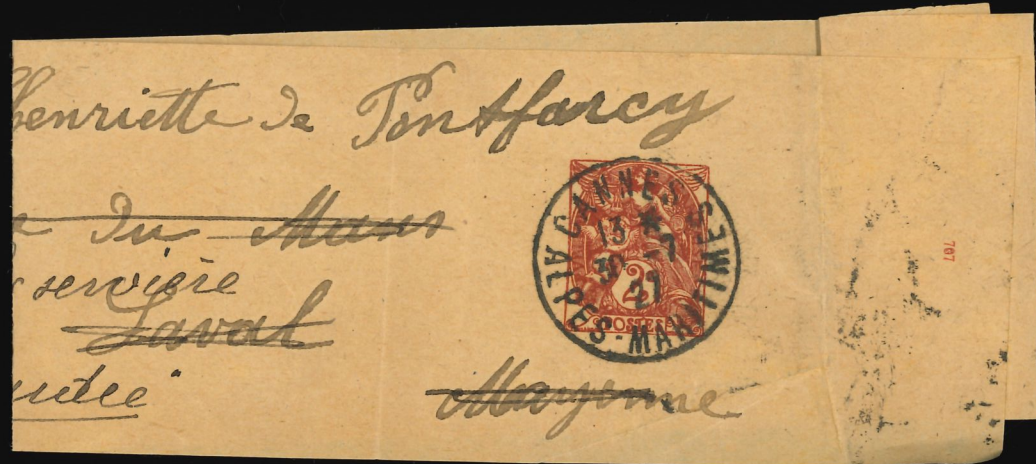 Henriette de Pontfarcy
du Mans
serviere
Laval
Mayenne
CANNES
ALPES-MARITIMES
13 *
30 -7
21
2
POSTES
767